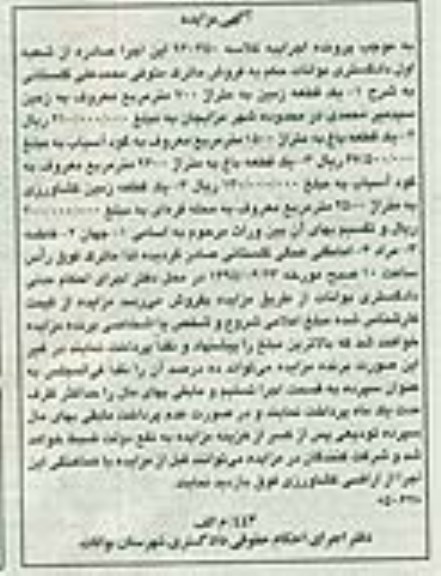 آگهی مزایده
به موجب پرونده اجرایی کلاسه این اجرا صادره از شعبه
اول دادگستری بوانات حکم به فروش ماترک متوفی محمدعلی گلستانی
به شرح ۱- یک قطعه زمین به متراژ ۷۰۰ مترمربع معروف به زمین
محمدی در محدوده شهر به مبلغ ریال
۲- یک قطعه باغ به متراژ ۱۵۰۰ مترمربع معروف به گود آسیاب به مبلغ
ریال ۳- یک قطعه باغ به متراژ مترمربع معروف به
گود آسیاب به مبلغ ریال ۴- یک قطعه زمین کشاورزی
به متراژ ۲۵۰۰ مترمربع معروف به محله به مبلغ
ریال و تقسیم بهای آن بین وراث مرحوم به اسامی ۱- جهان ۲- فاطمه
۳- مراد ۴- همگی گلستانی صادر گردیده لذا ماترک فوق رأس
ساعت ۱۰ صبح مورخه در محل دفتر اجرای احکام مدنی
دادگستری بوانات از طریق مزایده بفروش می‌رسد مزایده از قیمت
کارشناسی شده مبلغ اعلامی شروع و شخص یا اشخاصی برنده مزایده
خواهند شد که بالاترین مبلغ را پیشنهاد و نقدا پرداخت نمایند در غیر
این صورت برنده مزایده می‌تواند ده درصد آن را نقدا فی‌المجلس به
عنوان سپرده به قسمت اجرا تسلیم و مابقی بهای مال را حداکثر ظرف
مدت یک ماه پرداخت نمایند و در صورت عدم پرداخت مابقی بهای مال
سپرده تودیعی پس از کسر هزینه مزایده به نفع دولت ضبط خواهد
شد و شرکت کنندگان در مزایده می‌توانند قبل از مزایده با هماهنگی این
اجرا از اراضی کشاورزی فوق بازدید نمایند.
۴۴۳/م الف
دفتر اجرای احکام حقوقی دادگستری شهرستان بوانات